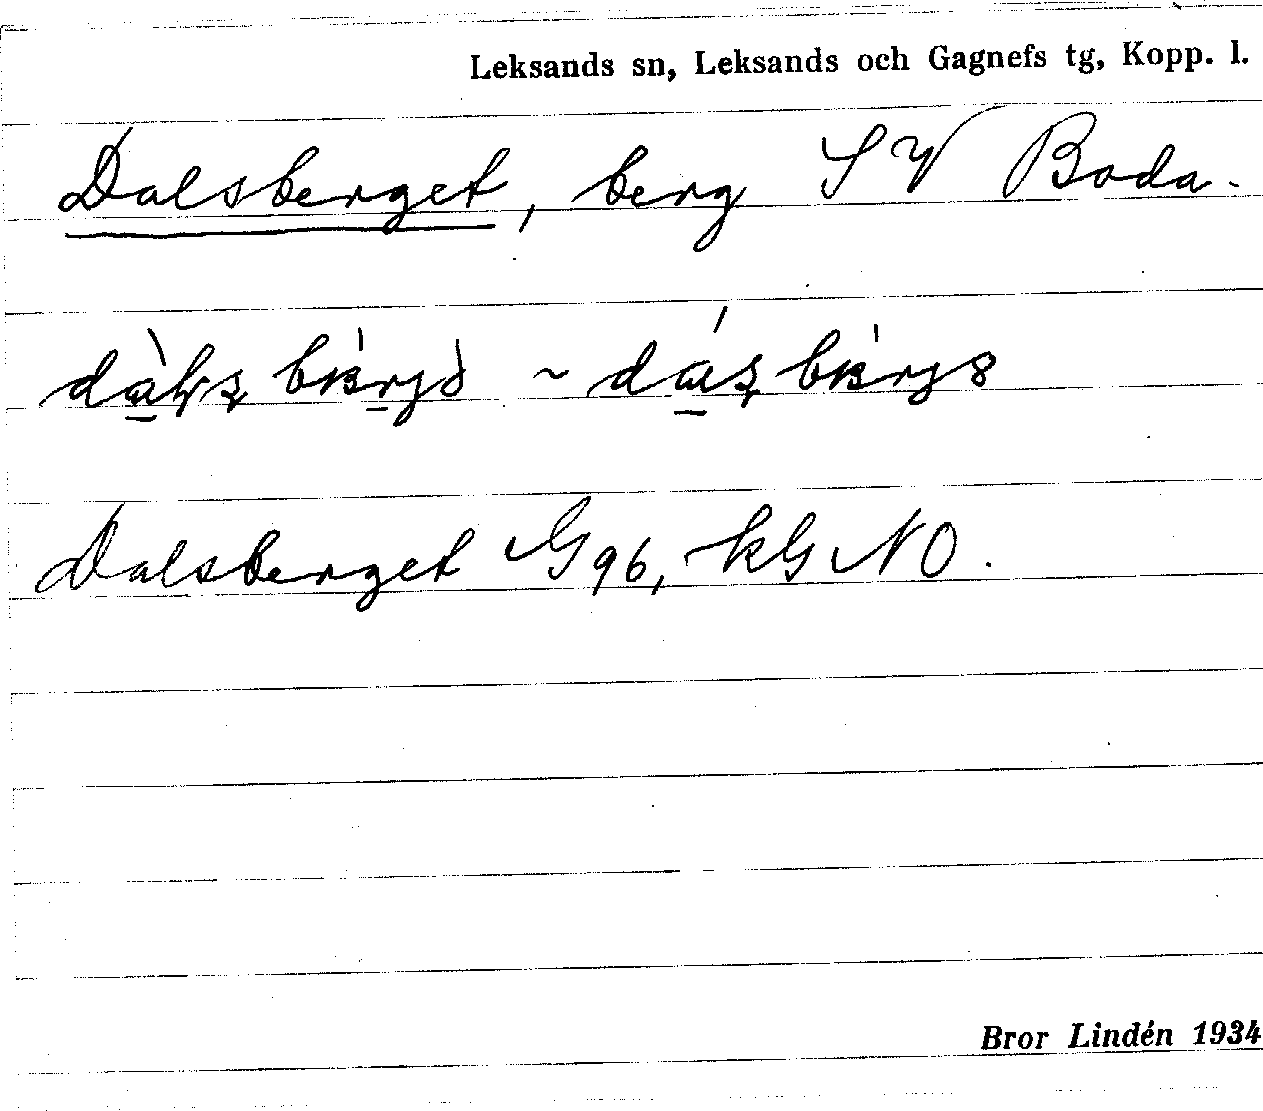 Leksands sn, Leksands och Gagnefs tg, Kopp. l.
Dalsberget, berg SV Boda.
~
Dalsberget G96, kG NO.
Bror Lindén 1934